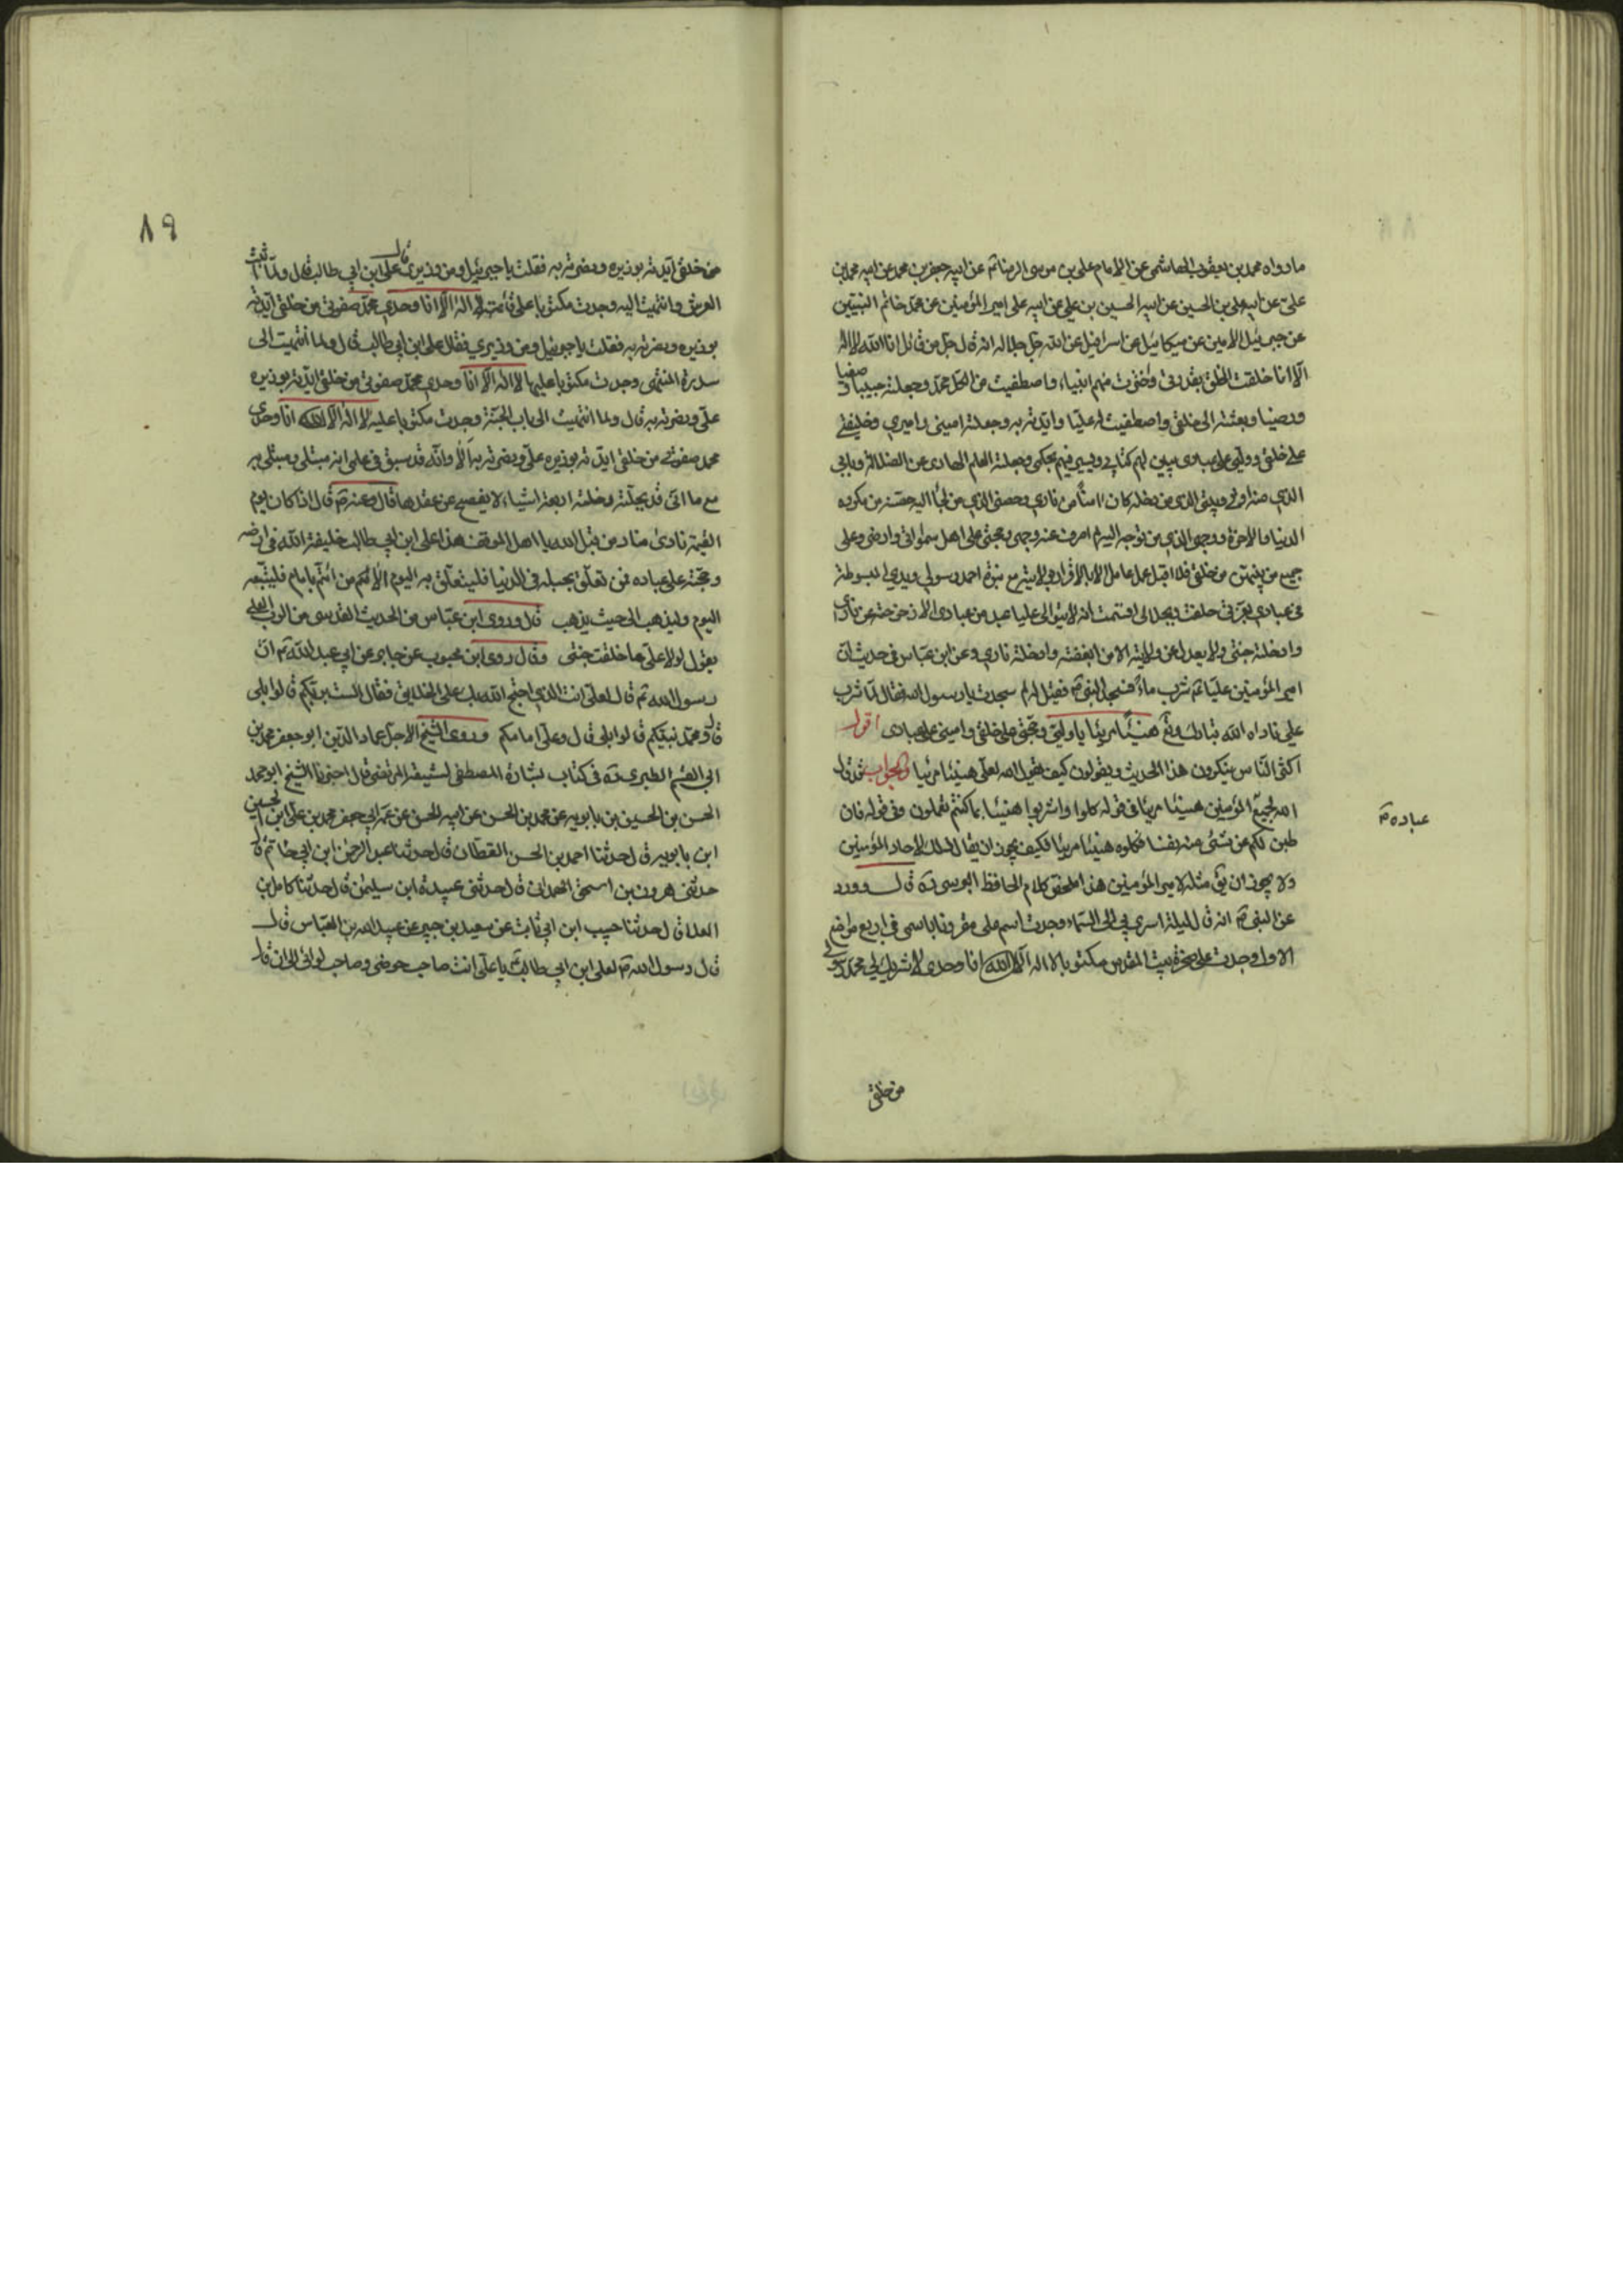 ما رواه محمد بن يعقوب الهاشمي عن الامام علي بن موسى الرضا عن ابيه جعفر بن محمد عن ابيه محمد بن
علي عن ابيه علي بن الحسين عن ابيه الحسين بن علي عن ابيه علي امير المؤمنين عن محمد خاتم النبيين
عن جبرئيل الامين عن ميكائيل عن اسرافيل عن الله جل جلاله انه قال جل من قائل انا الله لا اله
الا انا خلقت الخلق بقدرتي واخترت منهم انبياء واصطفيت من الكل محمد وجعلته حبيبا وصفيا
ورضيا وبعثته الى خلقي واصطفيت له عليا وايدته به وجعلته اميني واميري وخليفتي
على خلقي ووليي على عبادي يبين لهم كتابي ويسير فيهم بحكمي وجعلته العلم الهادي عن الضلالة وبابي
الذي منه اوتى وبيتي الذي من دخله كان امنا من ناري وحصني الذي من لجأ اليه حصنه من مكروه
الدنيا والاخرة ووجهي الذي من توجه اليه لم اصرف عنه وجهي وحجتي على اهل سمواتي وارضي وعلى
جميع من بينهن من خلقي فلا اقبل عمل عامل الا بالاقرار بولايته مع نبوة احمد رسولي ويدي المبسوطة
في عبادي فبعزتي حلفت وبجلالي اقسمت انه لا يتوالى عليا عبد من عبادي الا زحزحته عن ناري
وادخلته جنتي ولا يعدل عن ولايته الا من ابغضته وادخلته ناري وعن ابن عباس في حديث ان
امير المؤمنين عليا شرب ماء فسجد النبي فقيل له لم سجدت يا رسول الله فقال لما شرب
علي ناداه الله تبارك وتع هنيئا مريئا يا وليي وحجتي على خلقي واميني على عبادي اقول
اكثر الناس ينكرون هذا الحديث ويقولون كيف يقول الله لعلي هنيئا مريئا والجواب قد قال
الله لجميع المؤمنين هنيئا مريئا في قوله كلوا واشربوا هنيئا بما كنتم تعملون وفي قوله فان
طبن لكم عن شيء منه نفسا فكلوه هنيئا مريئا فكيف يجوز ان يقال ذلك لاحاد المؤمنين
ولا يجوز ان يق مثله لامير المؤمنين هذا ملحق كلام الحافظ البرسي ره قال وورد
عن النبي انه قال ليلة اسري بي الى السماء وجدت اسم علي مقرونا باسمي في اربع مواضع
الاول وجدت على صخرة بيت المقدس مكتوبا لا اله الا الله انا وحدي لا شريك لي محمد صفوتي
عباده
من خلقي
٨٩
من خلقي ايدته بوزيره ونصرته به فقلت يا جبرئيل ومن وزيري قال علي ابن ابي طالب قال ولما اتيت
العرش وانتهيت اليه وجدت مكتوبا على قائمته لا اله الا انا وحدي محمد صفوتي من خلقي ايدته
بوزيره ونصرته به فقلت يا جبرئيل ومن وزيري فقال علي ابن ابي طالب قال ولما انتهيت الى
سدرة المنتهى وجدت مكتوبا عليها لا اله الا انا وحدي محمد صفوتي من خلقي ايدته بوزيره
علي ونصرته به قال ولما انتهيت الى باب الجنة وجدت مكتوبا عليه لا اله الا الله انا وحدي
محمد صفوتي من خلقي ايدته بوزيره علي ونصرته به الا وانه قد سبق في علمي انه مبتلى ومبتلى به
مع ما اني قد نحلته ونحلته اربعة اشياء لا يفصح عن عقدها قال وعنه قال اذا كان يوم
القيمة نادى مناد من قبل الله يا اهل الموقف هذا علي ابن ابي طالب خليفة الله في ارضه
وحجته على عباده فمن تعلق بحبله في الدنيا فليتعلق به اليوم الا انكم من ائتم بامام فليتبعه
اليوم وليذهب الى حيث يذهب قال وروى ابن عباس من الحديث القدسي من الرب العلي
يقول لولا علي ما خلقت جنتي وقال روى ابن محبوب عن جابر عن ابي عبد الله ان
رسول الله قال لعلي انت الذي احتج الله بك على الخلايق فقال الست بربكم قالوا بلى
قال ومحمد نبيكم قالوا بلى قال وعلي امامكم وروى الشيخ الاجل عماد الدين ابو جعفر محمد بن
ابي القسم الطبري ره في كتاب بشارة المصطفى لشيعة المرتضى قال اخبرنا الشيخ ابو محمد
الحسن بن الحسين بن بابويه عن محمد بن الحسن عن ابيه الحسن عن عمه ابي جعفر محمد بن علي ابن الحسين
ابن بابويه قال حدثنا احمد بن الحسن القطان قال حدثنا عبد الرحمن ابن ابي حاتم قال
حدثني هرون بن اسحق الهمداني قال حدثني عبيدة ابن سليمن قال حدثنا كامل بن
العلا قال حدثنا حبيب ابن ابي ثابت عن سعيد بن جبير عن عبد الله بن العباس قال
قال رسول الله لعلي ابن ابي طالب يا علي انت صاحب حوضي وصاحب لوائي الى ان قال